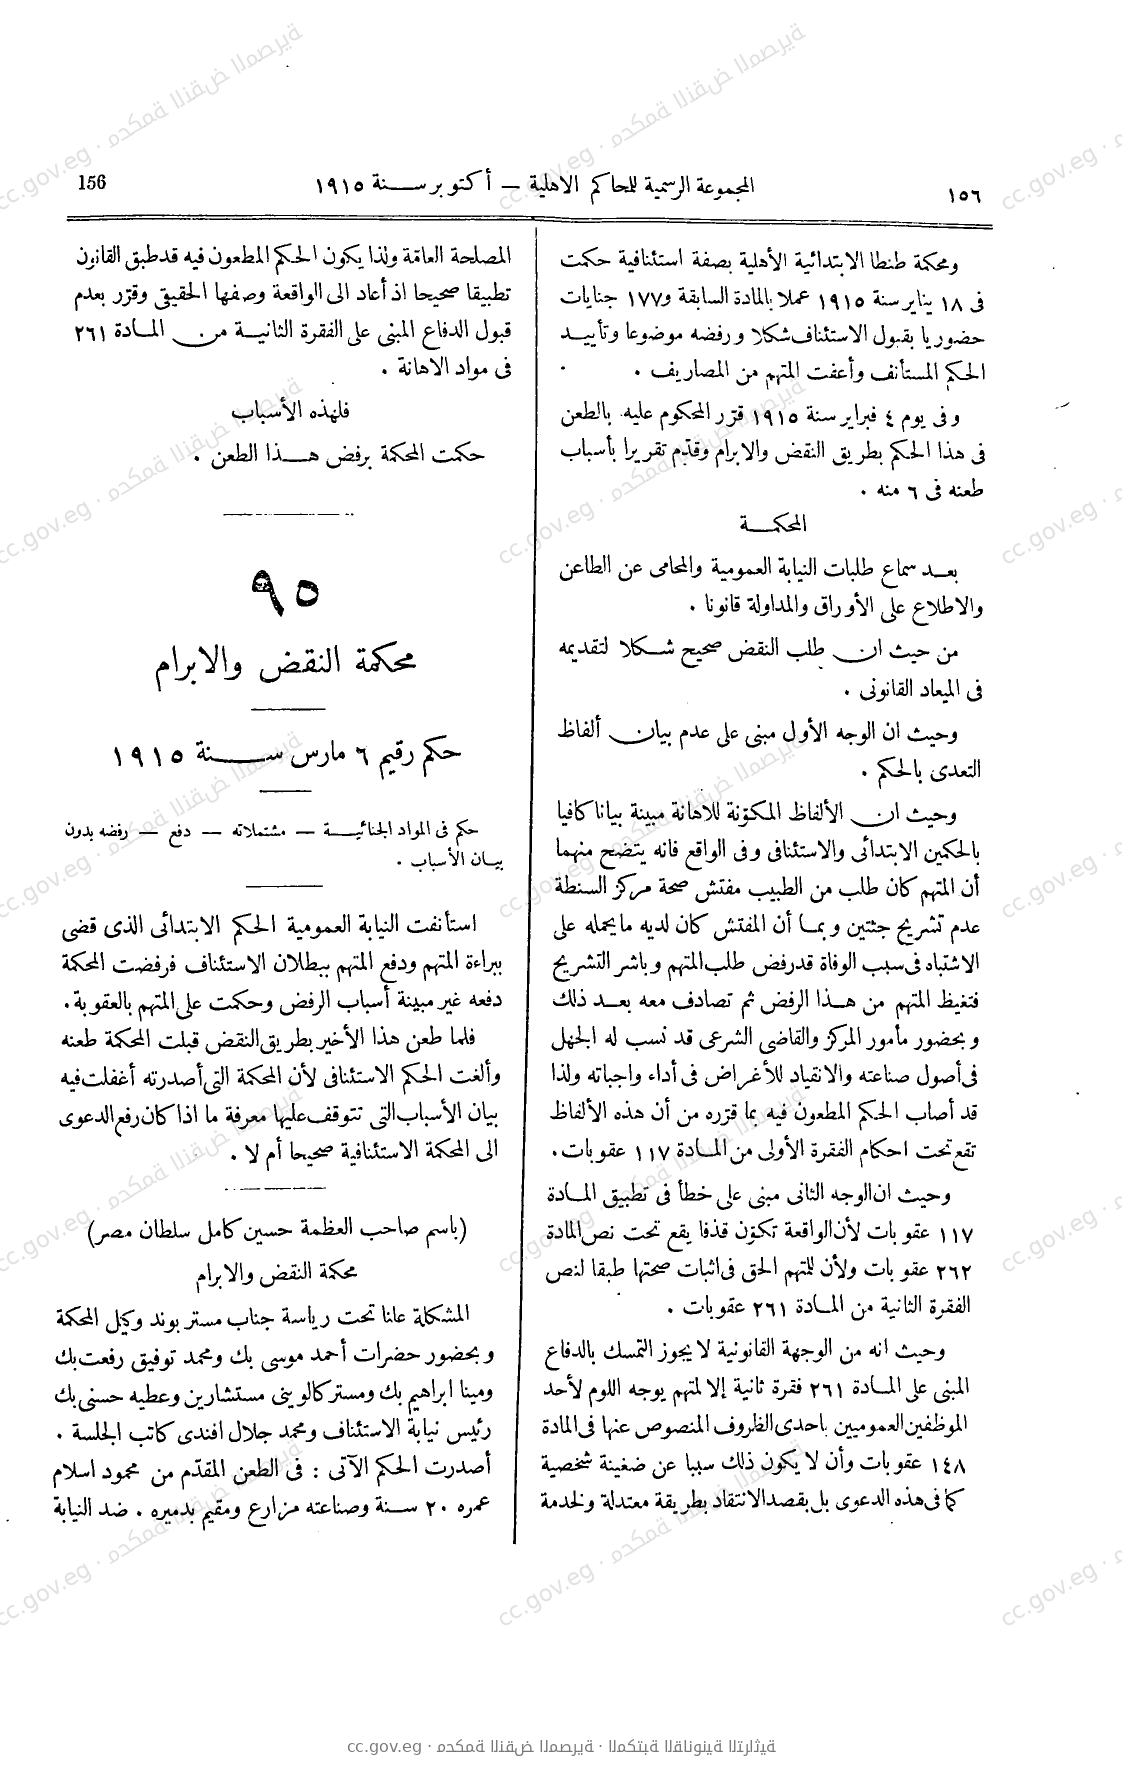 ١٥٦
المجموعة الرسمية للمحاكم الاهلية — أكتوبر سنة ١٩١٥
156
ومحكمة طنطا الابتدائية الأهلية بصفة استئنافية حكمت
فى ١٨ يناير سنة ١٩١٥ عملا بالمادة السابقة و١٧٧ جنايات
حضوريا بقبول الاستئناف شكلا ورفضه موضوعا وتأييد
الحكم المستأنف وأعفت المتهم من المصاريف .
وفى يوم ٤ فبراير سنة ١٩١٥ قرّر المحكوم عليه بالطعن
فى هذا الحكم بطريق النقض والابرام وقدّم تقريرا بأسباب
طعنه فى ٦ منه .
المحكمة
بعد سماع طلبات النيابة العمومية والمحامى عن الطاعن
والاطلاع على الأوراق والمداولة قانونا .
من حيث ان طلب النقض صحيح شكلا لتقديمه
فى الميعاد القانونى .
وحيث ان الوجه الأول مبنى على عدم بيان ألفاظ
التعدى بالحكم .
وحيث ان الألفاظ المكوّنة للاهانة مبينة بيانا كافيا
بالحكمين الابتدائى والاستئنافى وفى الواقع فانه يتضح منهما
أن المتهم كان طلب من الطبيب مفتش صحة مركز السنطة
عدم تشريح جثتين وبما أن المفتش كان لديه ما يحمله على
الاشتباه فى سبب الوفاة قد رفض طلب المتهم وباشر التشريح
فتغيظ المتهم من هذا الرفض ثم تصادف معه بعد ذلك
وبحضور مأمور المركز والقاضى الشرعى قد نسب له الجهل
فى أصول صناعته والانقياد للأغراض فى أداء واجباته ولذا
قد أصاب الحكم المطعون فيه بما قرّره من أن هذه الألفاظ
تقع تحت احكام الفقرة الأولى من المادة ١١٧ عقوبات .
وحيث ان الوجه الثانى مبنى على خطأ فى تطبيق المادة
١١٧ عقوبات لأن الواقعة تكوّن قذفا يقع تحت نص المادة
٢٦٢ عقوبات ولأن للمتهم الحق فى اثبات صحتها طبقا لنص
الفقرة الثانية من المادة ٢٦١ عقوبات .
وحيث انه من الوجهة القانونية لا يجوز التمسك بالدفاع
المبنى على المادة ٢٦١ فقرة ثانية إلا لمتهم يوجه اللوم لأحد
الموظفين العموميين باحدى الظروف المنصوص عنها فى المادة
١٤٨ عقوبات وأن لا يكون ذلك سببا عن ضغينة شخصية
كما فى هذه الدعوى بل بقصد الانتقاد بطريقة معتدلة ولخدمة
المصلحة العامّة ولذا يكون الحكم المطعون فيه قد طبق القانون
تطبيقا صحيحا اذ أعاد الى الواقعة وصفها الحقيقى وقرّر بعدم
قبول الدفاع المبنى على الفقرة الثانية من المادة ٢٦١
فى مواد الاهانة .
فلهذه الأسباب
حكمت المحكمة برفض هذا الطعن .
٩٥
محكمة النقض والابرام
حكم رقيم ٦ مارس سنة ١٩١٥
حكم فى المواد الجنائية — مشتملاته — دفع — رفضه بدون
بيان الأسباب .
استأنفت النيابة العمومية الحكم الابتدائى الذى قضى
ببراءة المتهم ودفع المتهم ببطلان الاستئناف فرفضت المحكمة
دفعه غير مبينة أسباب الرفض وحكمت على المتهم بالعقوبة .
فلما طعن هذا الأخير بطريق النقض قبلت المحكمة طعنه
وألغت الحكم الاستئنافى لأن المحكمة التى أصدرته أغفلت فيه
بيان الأسباب التى تتوقف عليها معرفة ما اذا كان رفع الدعوى
الى المحكمة الاستئنافية صحيحا أم لا .
(باسم صاحب العظمة حسين كامل سلطان مصر)
محكمة النقض والابرام
المشكلة علنا تحت رياسة جناب مستر بوند وكيل المحكمة
وبحضور حضرات أحمد موسى بك ومحمد توفيق رفعت بك
ومينا ابراهيم بك ومستر كالوينى مستشارين وعطيه حسنى بك
رئيس نيابة الاستئناف ومحمد جلال افندى كاتب الجلسة .
أصدرت الحكم الآتى : فى الطعن المقدّم من محمود اسلام
عمره ٢٠ سنة وصناعته مزارع ومقيم بدميره . ضد النيابة
cc.gov.eg · محكمة النقض المصرية · المكتبة القانونية التراثية